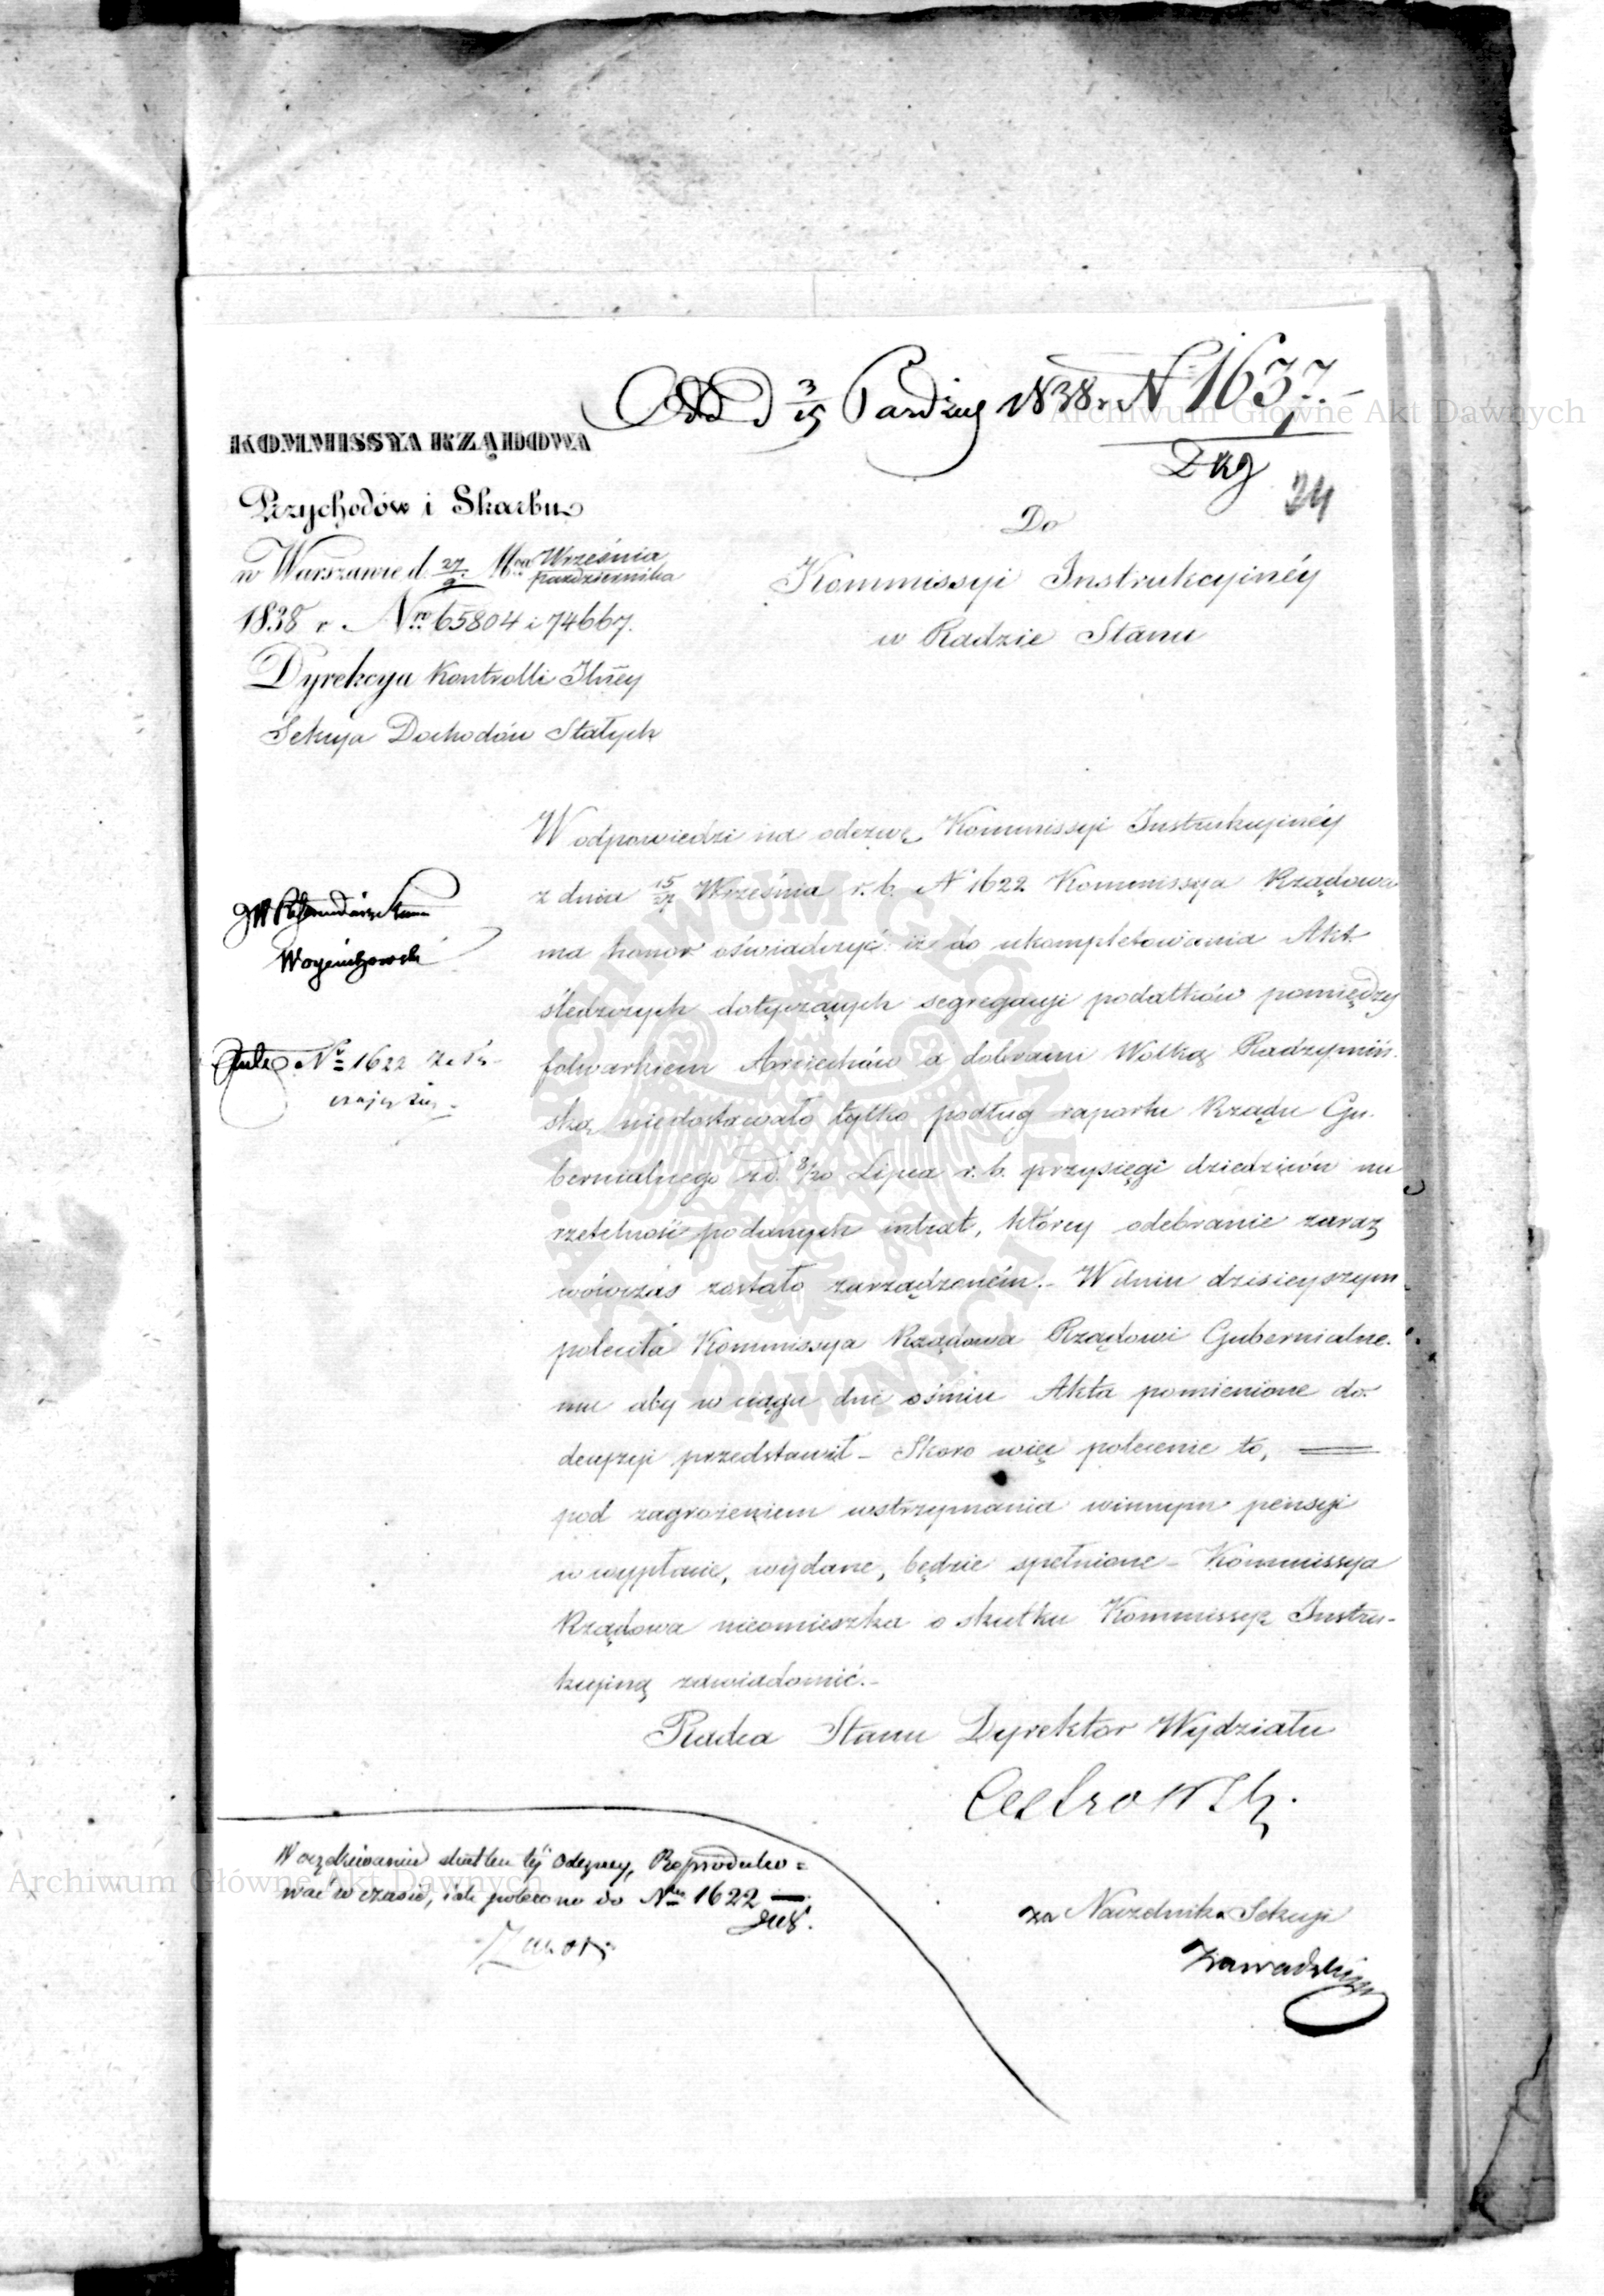 Odd d 3/15 Paździer 1838 r. N 1637.
34
KOMMISSYA RZĄDOWA
Przychodów i Skarbu
w Warszawie d. 27/9 Mca Września/października
1838 r. Nro 65804 i 74667.
Dyrekcya Kontrolli Jlnéy
Sekcya Dochodów Stałych
Do
Kommissyi Instrukcyinéy
w Radzie Stanu
W odpowiedzi na odezwę Kommissyi Instrukcyinéy
z dnia 15/27 Września r. b. N 1622 Kommissya Rządowa
ma honor oświadczyć: iż do ukompletowania Akt
śledczych dotyczących segregacyi podatków pomiędzy
folwarkiem Arciechów a dobrami Wolką Radzymiń-
ską niedostawało tylko podług raportu Rządu Gu-
bernialnego z d. 8/20 Lipca r. b. przysięgi dziedziców na
rzetelność podanych intrat, któréy odebranie zaraz
wówczas zostało zarządzoném. - W dniu dzisieyszym
poleciła Kommissya Rządowa Rządowi Gubernialne-
mu aby w ciągu dni ośmiu Akta pomienione do
decyzyi przedstawił - Skoro więc polecenie to,
pod zagrożeniem wstrzymania winnym pensyi
w wypłacie, wydane, będzie spełnione - Kommissya
Rządowa nieomieszka o skutku Kommissyę Instru-
kcyiną zawiadomić. -
Radca Stanu Dyrektor Wydziału
za Naczelnika Sekcyi
Zawadzki
Woyciechowski
N 1622
W oczekiwaniu skutku téj Odezwy, Reproduko=
wać w czasie, jak polecono do Nru 1622
Archiwum Główne Akt Dawnych
Archiwum Główne Akt Dawnych
ARCHIWUM GŁÓWNE AKT DAWNYCH